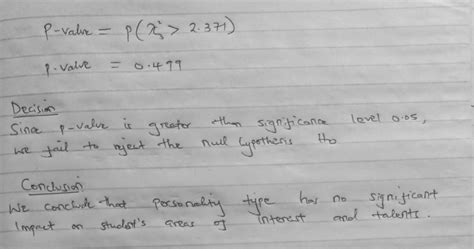 P-value = P(χ²₃ > 2.371)
p.value = 0.499
Decision
Since p-value is greater than significance level 0.05,
we fail to reject the null hypothesis H₀
Conclusion
We conclude that personality type has no significant
impact on student's areas of interest and talents.